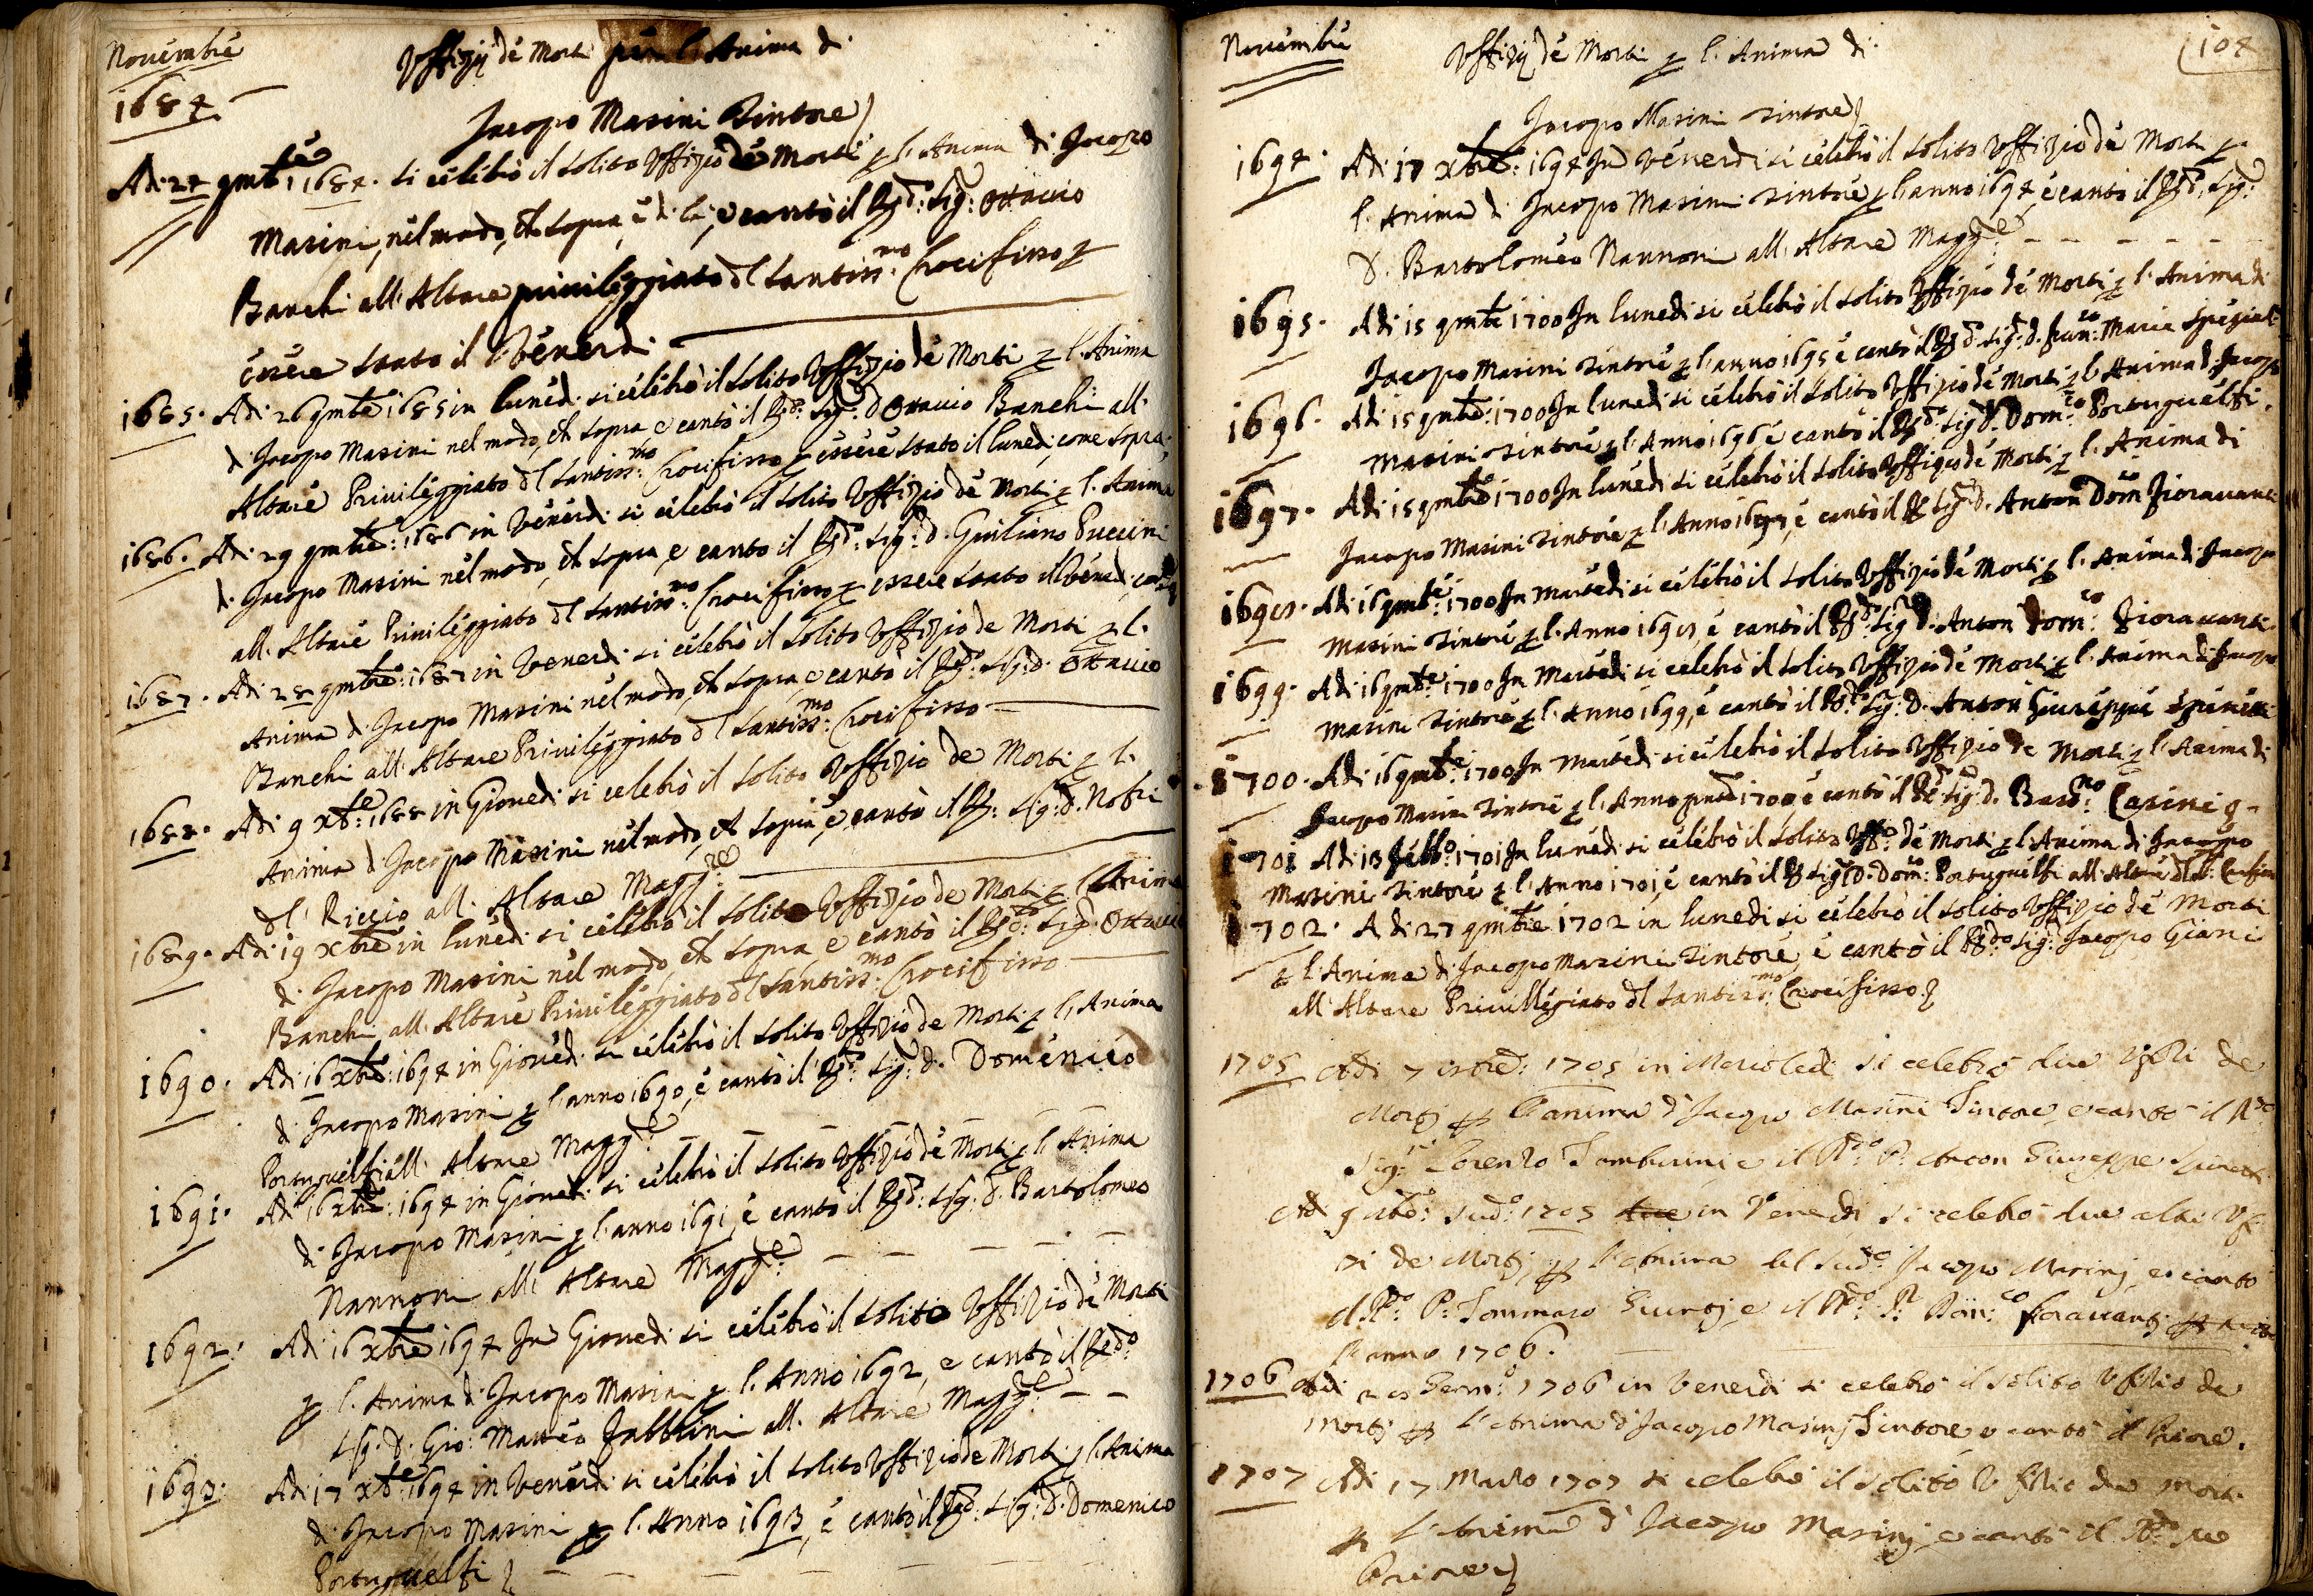 Novembre
1684
Uffizij de Morti per l'Anima di
Jacopo Masini Tintore
Adi 24 9mbre 1684. si celebrò il solito Uffizio de Morti p l'Anima di Jacopo
Masini, nel modo, ch sopra, e di lì, e cantò il Rdo: Sig: Ottavio
Banchi all'Altare privileggiato dl Santissmo: Crocifisso p
essere stato il Venerdi
1685. Adi 26 9mbre 1685 in lunedi si celebrò il solito Uffizio de Morti p l'Anima
di Jacopo Masini nel modo, ch sopra e cantò il Rdo: Sig: d Ottavio Banchi all'
Altare Privileggiato dl Santissmo: Crocifisso p essere stato il lunedi, come sopra;
1686. Adi 29 9mbre: 1686 in Venerdi si celebrò il solito Uffizio de Morti p l'Anima
di Jacopo Masini nel modo, ch sopra, e cantò il Rdo: Sig: d. Giuliano Puccini
all'Altare Privileggiato dl Santissmo: Crocifisso p essere stato il Venerdi,
1687. Adi 28 9mbre: 1687 in Venerdi si celebrò il solito Uffizio de Morti p l'
Anima di Jacopo Masini nel modo, ch sopra, e cantò il Rdo: Sig: d. Ottavio
Banchi all'Altare Privileggiato dl Santissmo: Crocifisso
1688. Adi 9 Xbre: 1688 in Giovedi si celebrò il solito Uffizio de Morti p l'
Anima di Jacopo Masini nel modo, ch sopra, e cantò il Rdo: Sig: d. Nofri
dl Riccio all'Altare Maggre
1689. Adi 19 Xbre in lunedi si celebrò il solito Uffizio de Morti p l'Anima
di Jacopo Masini nel modo, ch sopra, e cantò il Rdo: Sig: d. Ottavio
Banchi all'Altare Privileggiato dl Santissmo: Crocifisso
1690. Adi 16 Xbre: 1694 in Giovedi si celebrò il solito Uffizio de Morti p l'Anima
di Jacopo Masini p l'anno 1690, e cantò il Rdo: Sig: d. Domenico
Portuguelfi all'Altare Maggre:
1691. Adi 16 Xbre: 1694 in Giovedi si celebrò il solito Uffizio de Morti p l'Anima
di Jacopo Masini p l'anno 1691, e cantò il Rdo: Sig: d. Bartolomeo
Nannoni all'Altare Maggre:
1692: Adi 16 Xbre 1694 In Giovedi si celebrò il solito Uffizio de Morti
p l'Anima di Jacopo Masini p l'Anno 1692, e cantò il Redo
Sig: d. Gio: Matteo Fabbrini all'Altare Maggre
1693. Adi 17 Xbre: 1694 in Venerdi si celebrò il solito Uffizio de Morti p l'Anima
di Jacopo Masini p l'Anno 1693, e cantò il Rdo: Sig: d. Domenico
Portuguelfi
Novembre
Uffizij de Morti p l'Anima di
108
Jacopo Masini Tintore
1694. Adi 17 Xbre: 1694 In Venerdi si celebrò il solito Uffizio de Morti p
l'Anima di Jacopo Masini Tintore p l'anno 1694, e cantò il Rdo: Sig:
D. Bartolomeo Nannoni all'Altare Maggre:
1695. Adi 15 9mbre 1700 In lunedi si celebrò il solito Uffizio de Morti p l'Anima di
Jacopo Masini Tintore p l'anno 1695 e cantò il Rdo: Sig: d. Franco: Maria Speziali
1696. Adi 15 9mbre: 1700 In lunedi si celebrò il solito Uffizio de Morti p l'Anima di Jacopo
Masini Tintore p l'Anno 1696 e cantò il Rdo Sig d. Domco: Portuguelfi.
1697. Adi 15 9mbre 1700 In lunedi si celebrò il solito Uffizio de Morti p l'Anima di
Jacopo Masini Tintore p l'Anno 1697, e cantò il Rdo Sig d. Anton Domco Fioravanti
1698. Adi 16 9mbre: 1700 In Martedi si celebrò il solito Uffizio de Morti p l'Anima di Jacopo
Masini Tintore p l'Anno 1698, e cantò il Rdo: Sig d. Anton Domco: Fioravanti.
1699. Adi 16 9mbre: 1700 In Martedi si celebrò il solito Uffizio de Morti p l'Anima di Jacopo
Masini Tintore p l'Anno 1699, e cantò il Rdo: Sig: D. Anton Giuseppe Spinetti
1700. Adi 16 9mbre: 1700 In Martedi si celebrò il solito Uffizio de Morti p l'Anima di
Jacopo Masini Tintore p l'Anno pnte 1700 e cantò il Rdo Sig: d. Bastno: Casini
1701 Adi 13 Febbo: 1701 In lunedi si celebrò il solito Uffo: de Morti p l'Anima di Jacopo
Masini Tintore p l'Anno 1701, e cantò il Rdo Sig: D. Domco: Portuguelfi all'Altare dl S: Crocifisso
1702. Adi 27 9mbre 1702 in lunedi si celebrò il solito Uffizio de Morti
p l'Anima di Jacopo Masini Tintore, e cantò il Rdo: Sig: Jacopo Giani
all'Altare Privillegiato dl Santissmo: Crocifisso
1705 Adi 7 1705 in Mercoledi si celebrò due Uffizi de
Morti p l'anima d'Jacopo Masini Tintore, e cantò il Rdo
Sigr: Lorenzo Tamburini, e il Rdo: P: Anton Giuseppe Spinetti
Adi 9 sudo: 1705 in Venerdi si celebrò due altri Uf-
zi de Morti p l'Anima del Sudo: Jacopo Masini, e cantò
il Rdo: P: Tommaso Giuntj, e il Rdo: Domco: Fioravanti
l'anno 1706.
1706 Adi Genno: 1706 in Venerdi si celebrò il solito Ufizio de
Morti p l'Anima d'Jacopo Masinj Tintore e cantò il Priore.
1707 Adi 17 Marzo 1707 si celebrò il solito Ufizio de Morti
p l'Anima d'Jacopo Masinj e cantò il Rdo
Priore